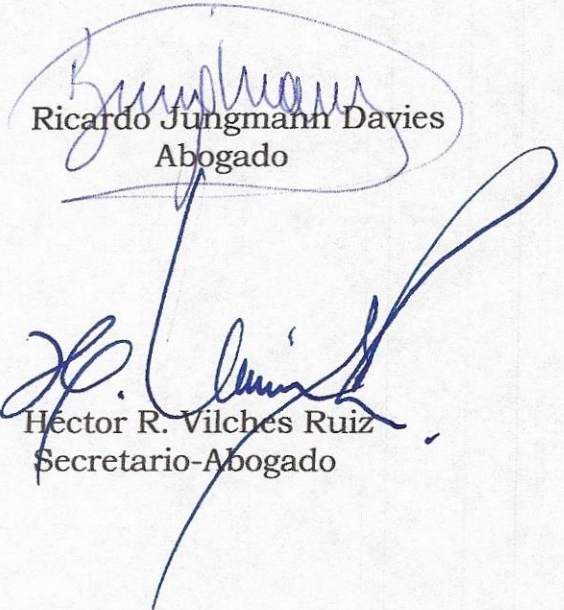 Ricardo Jungmann Davies
Abogado
Héctor R. Vilches Ruiz
Secretario-Abogado